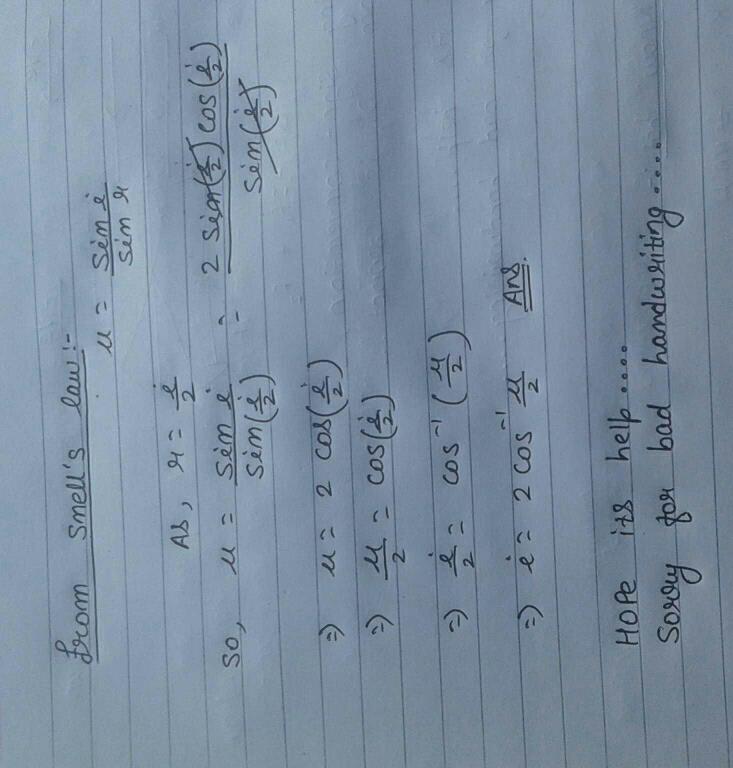 from smell's law:-
u = sin i / sin r
As, r = i/2
so, u = sin i / sin(i/2) = 2 sin(i/2) cos(i/2) / sin(i/2)
=) u = 2 cos(i/2)
=) u/2 = cos(i/2)
=) i/2 = cos⁻¹(u/2)
=) i = 2 cos⁻¹ u/2 Ans.
HOPE its help....
Sorry for bad handwriting....